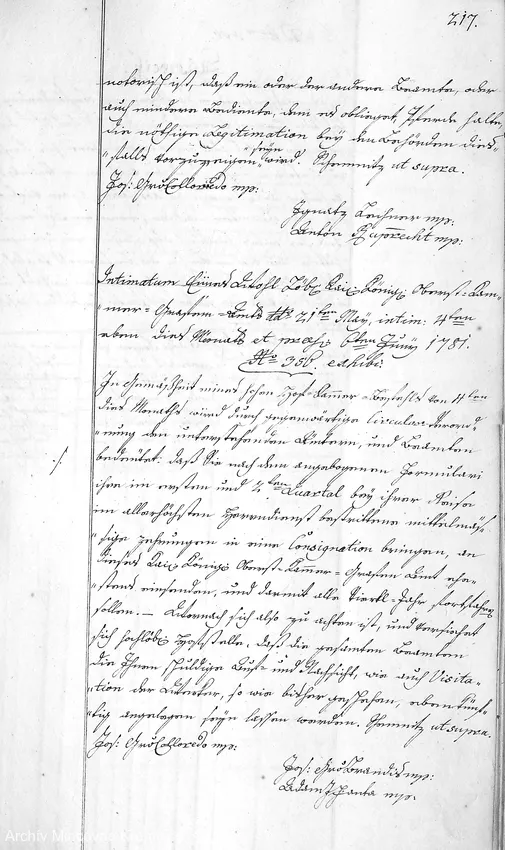 217.
notorisch ist, daß ein oder der andere Beamte, oder
auch mindere Bediente, dem es oblieget, Pferde halte,
die nöthige Legitimation bey den Behörden dies-
"falls vorzuzeigen seyn wird. Schemnitz ut supra.
Jos: Gr: Colloredo mp:
Ignatz Lechner mp:
Anton Rupprecht mp:
Intimatum Eines Wohl Löbl Kai: König: Oberst-Kam-
mer-Grafen-Amts dto 21ten May, intim: 4ten
eben dies Monats et præs: 6ten Juny 1781.
No 356. exhibi:
In Gemäßheit eines hohen Hof-Kammer-Befehls von 4ten
dies Monaths wird durch gegenwärtige Circular Verord-
"nung den unterstehenden Ämtern, und Beamten
bedeutet: daß Sie nach dem angebogenen Formulari
ihre im ersten und 2ten Quartal bey ihrer Reise
im allerhöchsten Herrndienst bestrittene mittelmäs-
"sige Zehrungen in eine Consignation bringen, an
dieses Kai: König: Oberst-Kammer-Grafen Amt ehe-
"stens einsenden, und damit alle viertl-Jahr fortfahren
sollen. — Wornach sich also zu achten ist, und versiehet
sich hochlöbl Hofstelle, daß die gesamten Beamten
die Ihnen schuldige Auf- und Nachsicht, wie auch Visita-
"tion der Werker, so wie bisher geschehen, eben künf-
"tig angelegen seyn lassen werden. Schemnitz ut supra.
Jos: Gr: Colloredo mp:
Jos: Gr: Brandis mp:
Adam mp:
Archiv